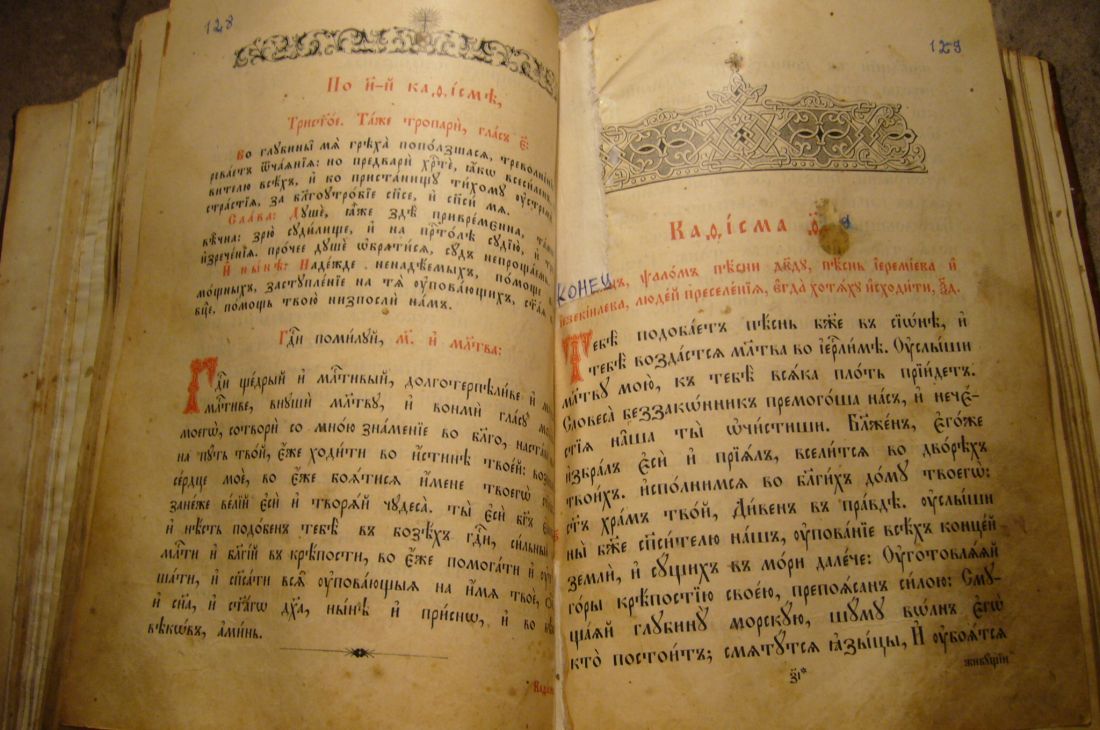 128
По и҃-й каѳі́смѣ,
Трист҃о́е. Та́же тропарѝ, гла́съ є҃:
Во глубины̀ мѧ̀ грѣха̀ попо́лзшасѧ, треволне́нїе
рева́етъ ѿча́ѧнїѧ: но предварѝ хр҃тѐ, ꙗ҆́кѡ всеси́ленъ,
ви́телю всѣ́хъ, и҆ ко приста́нищу ти́хому ᲂу҆стремѝ
стра́стїѧ, за бл҃гоутро́бїе сп҃се, и҆ сп҃си́ мѧ.
Сла́ва: Душѐ, ꙗ҆́же здѣ̀ привре́менна,
вѣ̑чна: зрю̀ суди́лище, и҆ на прⷭ҇то́лѣ судїю̀, и҆
и҆зрече́нїѧ. про́чее душѐ ѡ҆брати́сѧ, су́дъ непроща́емъ.
И҆ ны́нѣ: Наде́жде ненадѣ́емыхъ, по́моще
мощны́хъ, заступле́нїе на тѧ̀ ᲂу҆пова́ющихъ, ст҃а́ѧ
вц҃е, по́мощь твою̀ низпослѝ на́мъ.
Гдⷭ҇и поми́луй, м҃. И҆ мл҃тва:
Гдⷭ҇и ще́дрый и҆ млⷭ҇тивый, долготерпѣли́ве и҆
млⷭ҇тиве, внушѝ мл҃тву, и҆ вонмѝ гла́су
моегѡ̀, сотворѝ со мно́ю зна́менїе во бл҃го,
на пу́ть тво́й, є҆́же ходи́ти во и҆́стинѣ твое́й:
се́рдце моѐ, во є҆́же боѧ́тисѧ и҆́мене твоегѡ̀
зане́же ве́лїй є҆сѝ и҆ творѧ́й чудеса̀. ты̀ є҆сѝ бг҃ъ
и҆ нѣ́сть подо́бенъ тебѣ̀ въ бозѣ́хъ гдⷭ҇и, си́льный
млⷭ҇ти и҆ бл҃гі́й въ крѣ́пости, во є҆́же помога́ти и҆
ша́ти, и҆ сп҃са́ти всѧ̑ ᲂу҆пова́ющыѧ на и҆́мѧ твоѐ,
и҆ сн҃а, и҆ ст҃а́гѡ дх҃а, ны́нѣ и҆ при́снѡ, и҆ во
вѣкѡ́въ, а҆ми́нь.
129
Каѳі́сма
КОНЕЦ ъ, ѱало́мъ пѣ́сни дв҃ду, пѣ́снь і҆еремі́ева и҆
і҆езекі́илева, люде́й преселе́нїѧ, є҆гда̀ хотѧ́ху и҆сходи́ти, ѯ҃д.
Тебѣ̀ подоба́етъ пѣ́снь бж҃е въ сїѡ́нѣ, и҆
тебѣ̀ возда́стсѧ мл҃тва во і҆ерⷭ҇ли́мѣ. Оу҆слы́ши
мл҃тву мою̀, къ тебѣ̀ всѧ́ка пло́ть прїи́детъ.
Словеса̀ беззако́нникъ премого́ша на́съ, и҆ нече́-
стїѧ на̑ша ты̀ ѡ҆чи́стиши. Бл҃же́нъ, є҆го́же
и҆збра́лъ є҆сѝ и҆ прїѧ́лъ, всели́тсѧ во дво́рѣхъ
твои́хъ. и҆спо́лнимсѧ во бл҃ги́хъ до́му твоегѡ̀:
ст҃ъ хра́мъ тво́й, Ди́венъ въ пра́вдѣ. ᲂу҆слы́ши
ны̀ бж҃е сп҃си́телю на́шъ, ᲂу҆пова́нїе всѣ́хъ конце́й
землѝ, и҆ су́щихъ въ мо́ри дале́че: Оу҆готовлѧ́ѧй
го́ры крѣ́постїю свое́ю, препоѧ́санъ си́лою: Сму-
ща́ѧй глубину̀ морску́ю, шу́му во́лнъ є҆гѡ̀
кто̀ постои́тъ; смѧту́тсѧ ꙗ҆зы́цы, И҆ ᲂу҆боѧ́тсѧ
живу́щїи